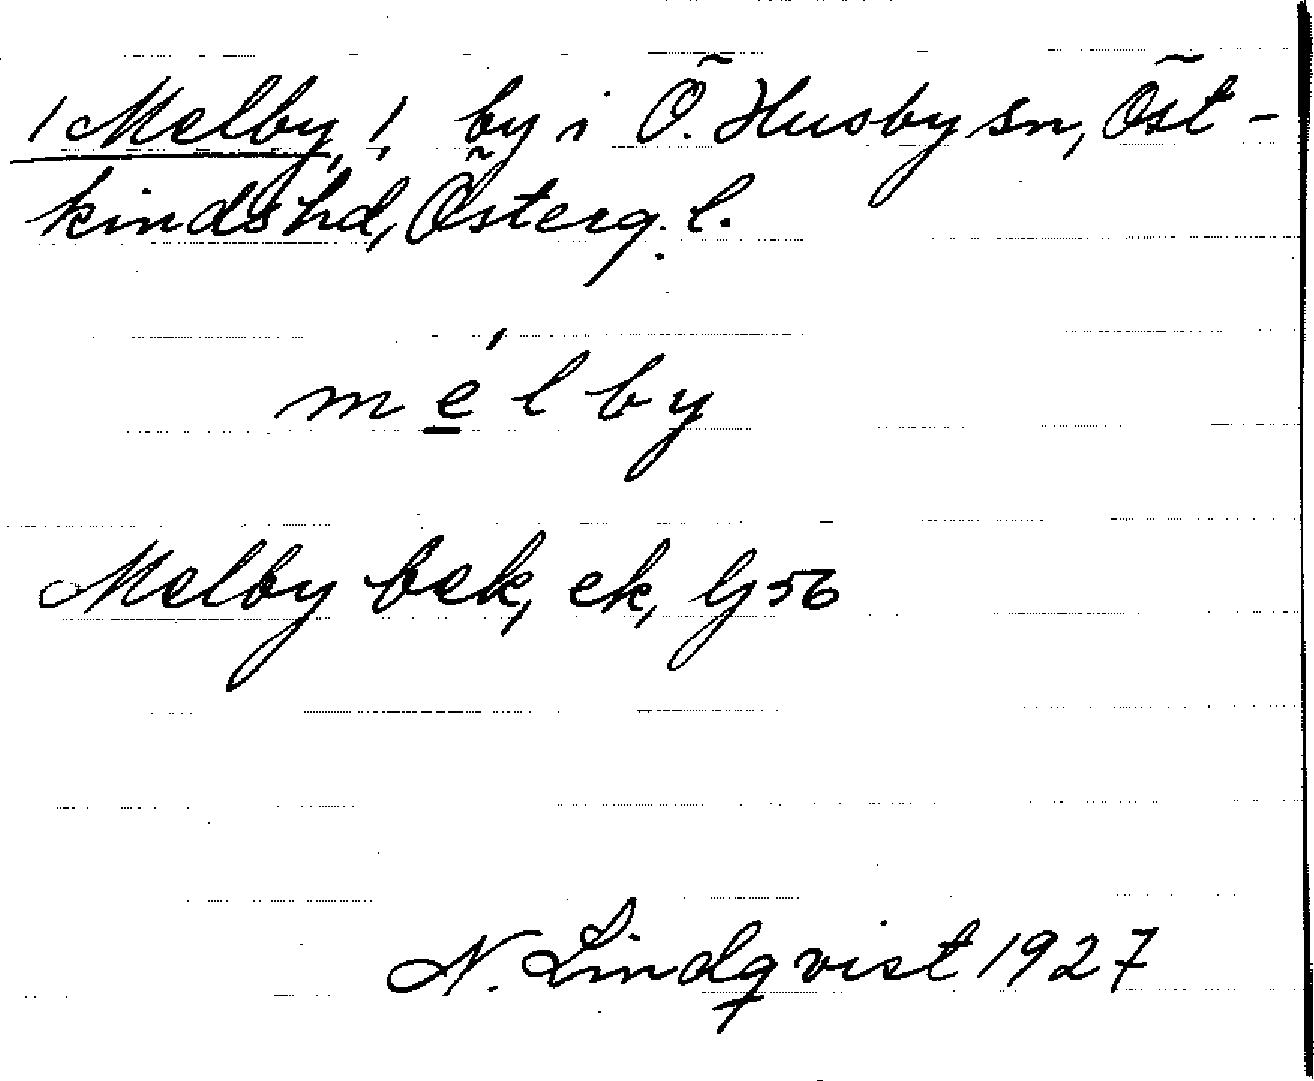 /Melby,/, by i Ö. Husby sn, Öst-
kinds hd, Österg. l.
me̱ ́l by
Melby bek, ek, Gj 56
N. Lindqvist 1927